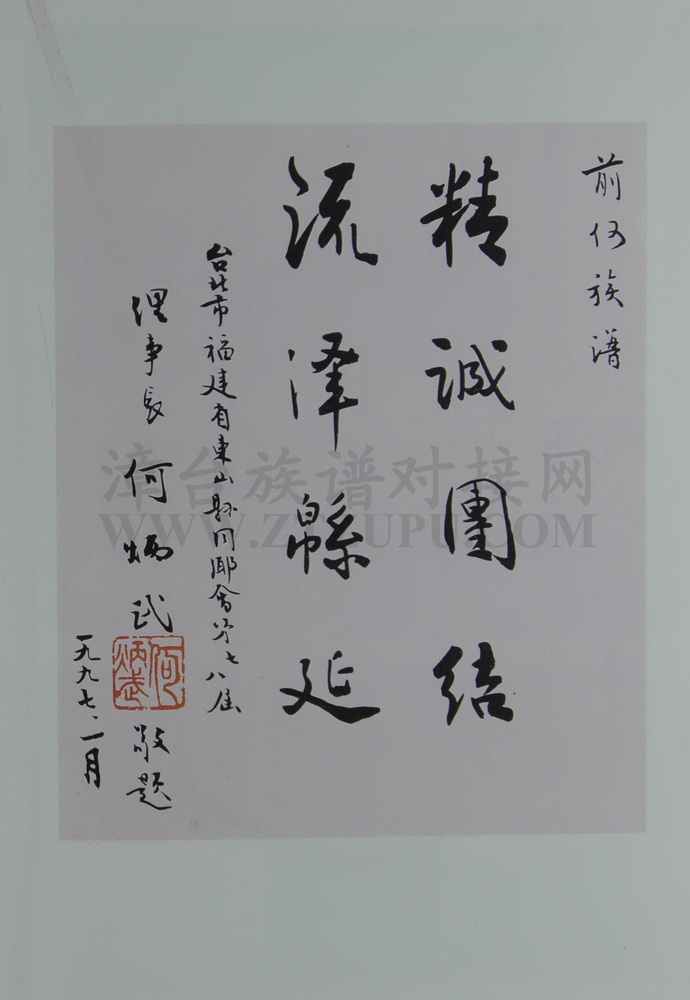 前何族谱
精诚團结
流泽緜延
台北市福建省東山縣同鄉會第七八届
理事長 何炳武 敬题
何炳武
一九九七、一月
漳台族谱对接网